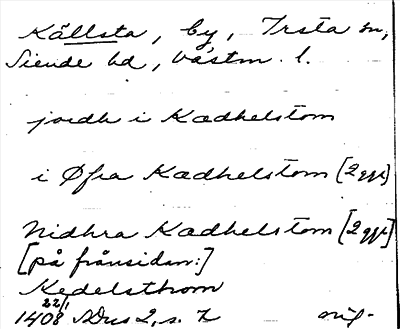 Källsta, by, Irsta sn,
Siende hd, Västm. l.
jordh i Kædhelstom
i Øfra Kædhelstom [2 ggr]
Nidhra Kædhelstom [2 ggr]
[på frånsidan:]
Kedelsthom
22/1
1408 SDns 2, s. 7 nil.